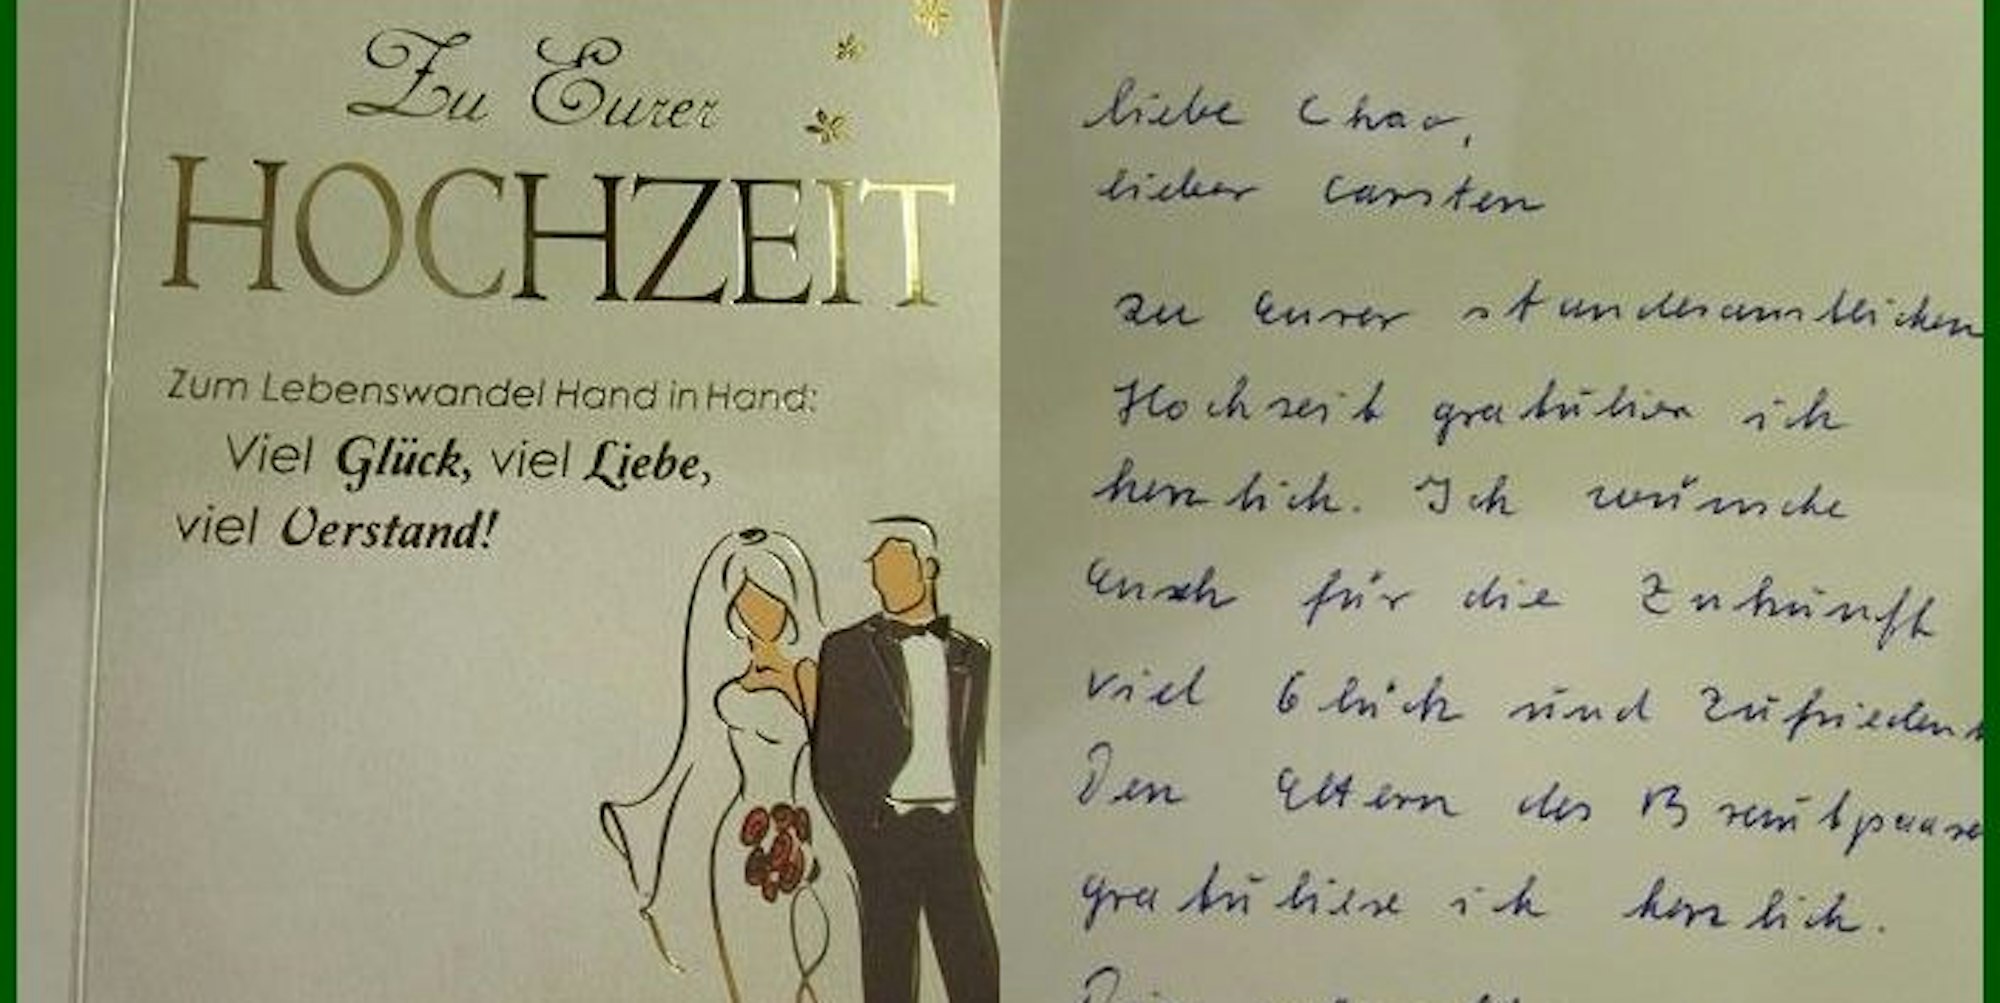 Zu Eurer
HOCHZEIT
Zum Lebenswandel Hand in Hand:
Viel Glück, viel Liebe,
viel Verstand!
liebe Chao,
lieber Carsten
zu Eurer standesamtlichen
Hochzeit gratuliere ich
herzlich. Ich wünsche
Euch für die Zukunft
viel Glück und
Den Eltern des
gratuliere ich herzlich.